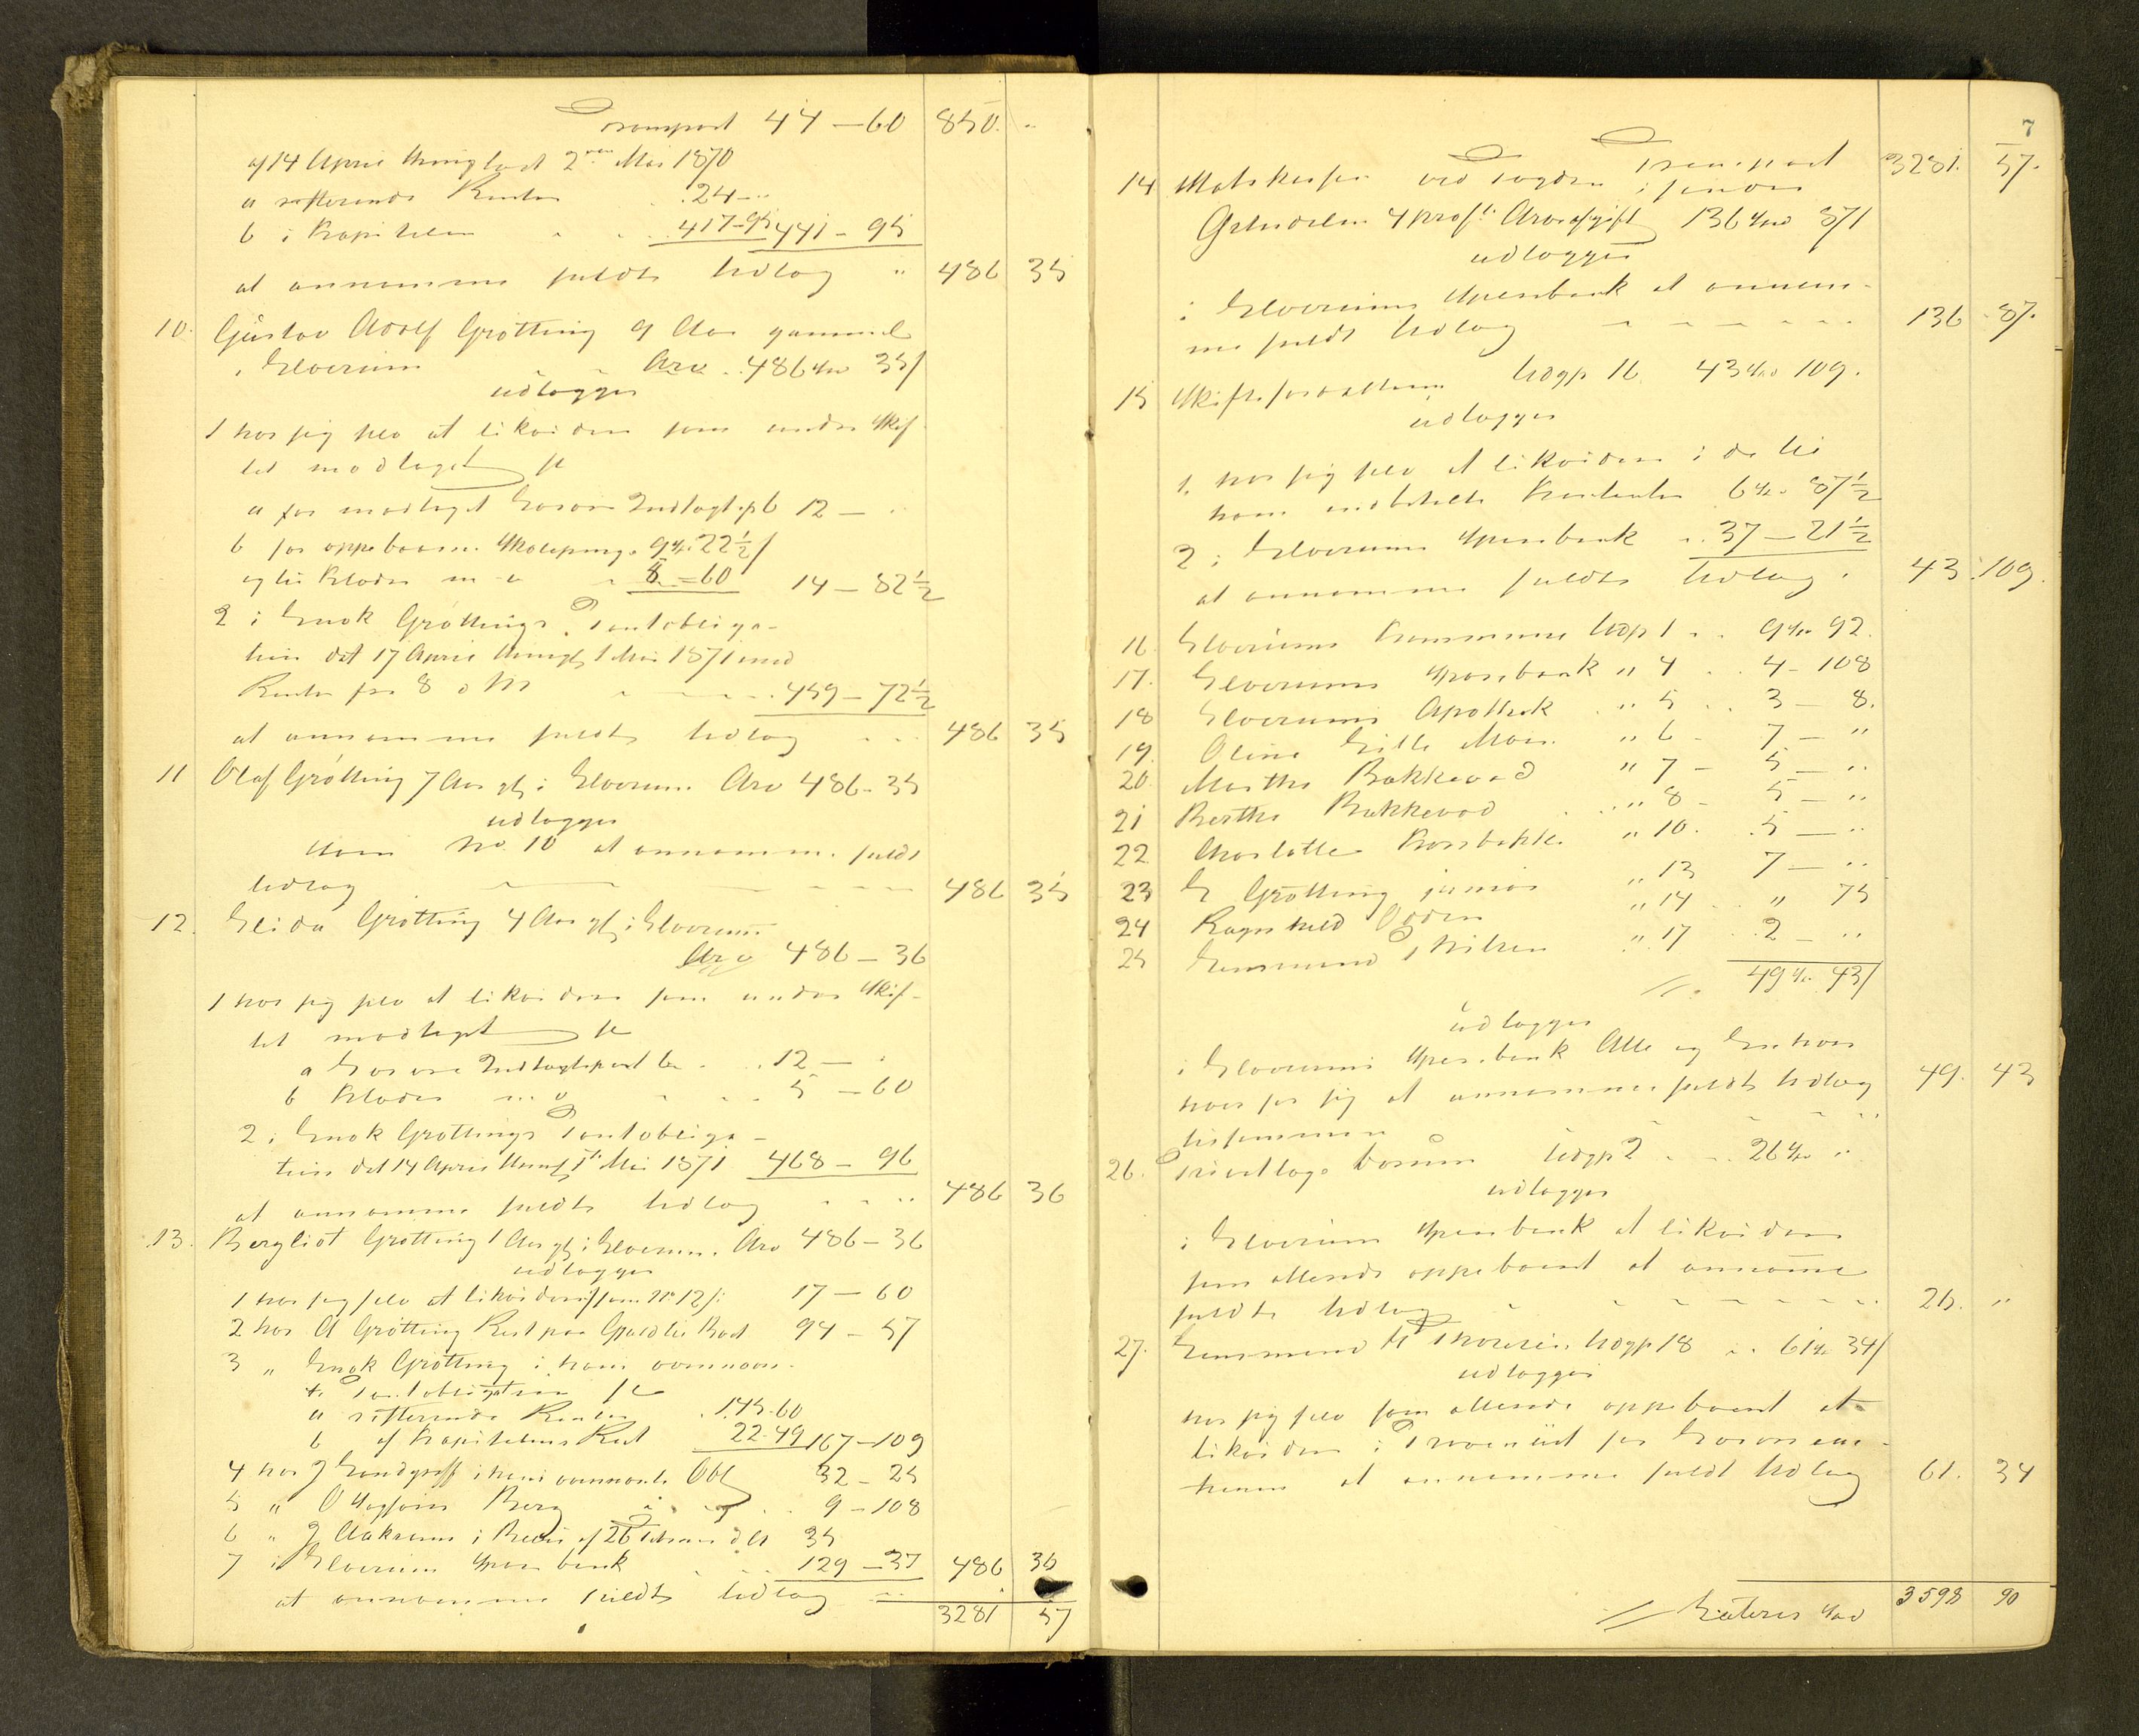 Transport 44 – 60 850. "
af 14 April thinglæst 2den Mai 1870
a resterende Renter 24 – "
b i Kapitalen 417–95 441 – 95
at annamme fuldt Udlæg " 486 35
10. Gustav Adolf Grøtting 9 Aar gammel
i Elverum Arv 486 35/
udlægges
1 hos sig selv at likvidere som under Skif-
tet modtaget
a for modtaget Løsøre Indtægtsp 6 12 – "
b for oppebaarne Skolepenge 9 22½/
og til Klæder m v 5 – 60 14 – 82½
2 i Enok Grøttings Pantobliga-
tion dat 17 April thingl 1 Mai 1871 med
Renter fra 8 d M 459 – 72½
at annamme fuldt Udlæg 486 35
11 Olaf Grøtting 7 Aar gl i Elverum Arv 486 – 35
udlægges
som No 10 at annamme fuldt
Udlæg 486 35
12. Elida Grøtting 4 Aar gl i Elverum
Arv 486 – 36
1 hos sig selv at likvidere som under Skif-
tet modtaget
a Løsøre Indtægtspost 12 –
b Klæder m v 5 – 60
2 i Enok Grøttings Pantobliga-
tion dat 14 April thingl 1ste Mai 1871 468 – 96
at annamme fuldt Udlæg 486 36
13. Bergliot Grøtting 1 Aar gl i Elverum. Arv 486 – 36
udlægges
1 hos sig selv at likvidere som No 12 17 – 60
2 hos A Grøtting Rest paa 94 – 57
3 " Enok Grøtting i hans ovennævn-
te Pantobligation
a resterende Renter 145–60
b af Kapitalens Rest 22–49 167 – 109
4 hos J i hans ovennævnte Obl 32 – 25
5 " O Berg 9 – 108
6 " J Aakrann i 26 35
7 i Elverums Sparebank 129 – 37 486 36
at annamme fuldt Udlæg
3281 57
7
Transport 3281. 57.
14 Statskassen ved Fogden i søndre
Østerdalen 4 prost Arveafgift 136 87/
udlægges
i Elverums Sparebank at annam-
me fuldt Udlæg 136 87.
15 Skifteforvalteren Udgp 16 43 109.
udlægges
1. hos sig selv at likvidere i de til
ham indbetalte Kontanter 6 87½
2 i Elverums Sparebank 37 – 21½
at annamme fuldt Udlæg 43. 109.
16 Elverums Kommune Udgp 1 9 92.
17. Elverums Sparebank " 4 4 – 108
18 Elverums Apothek " 5 3 – 8.
19. Oline Moen " 6 – 7 – "
20. Marthe Bakkevad " 7 – 5 – "
21 Berthe Bakkevad " 8 – 5 – "
22 Charlotte " 10. 5 – "
23 E Grøtting junior " 13 7 – "
24 Ragnhild " 14 " 75
25 Nilsen " 17 2 – "
49 43/
udlægges
i Elverums Sparebank Alle og Enhver
hver for sig at annamme fuldt Udlæg 49. 43
tilsammen
26. Privatlæge Udgp 2 26 "
udlægges
i Elverums Sparebank at likvidere
som allerede oppebaaret at annamme
fuldt Udlæg 26. "
27. Lensmand H Thoresen Udgp 18 61 34/
udlægges
hos sig selv som allerede oppebaaret at
likvidere i Provenüet for Løsøreauk-
tionen at annamme fuldt Udlæg 61. 34
Lateris 3598 90